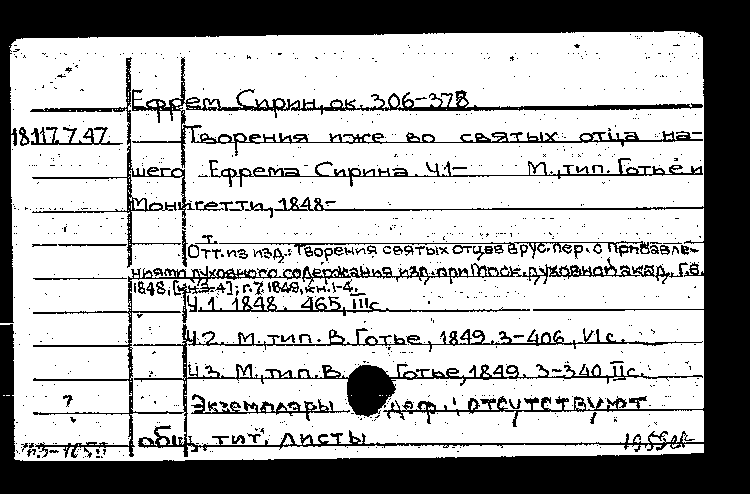 Ефрем Сирин, ок. 306-378.
18.117.7.47. Творения иже во святых отца на-
шего Ефрема Сирина. Ч.1- М., тип. Готье и
Монигетти, 1848-
Отт. из изд.: Творения святых отцев в рус. пер. с прибавле-
ниями духовного содержания, изд. при Моск. духовной акад. Т.6.
1848, [кн.3-4]; т.7. 1849, кн.1-4.
Ч.1. 1848. 465, III с.
Ч.2. М., тип. В. Готье, 1849. 3-406, VI с.
Ч.3. М., тип. В. Готье, 1849. 3-340, II с.
? Экземпляры деф.: отсутствуют
общ. тит. листы